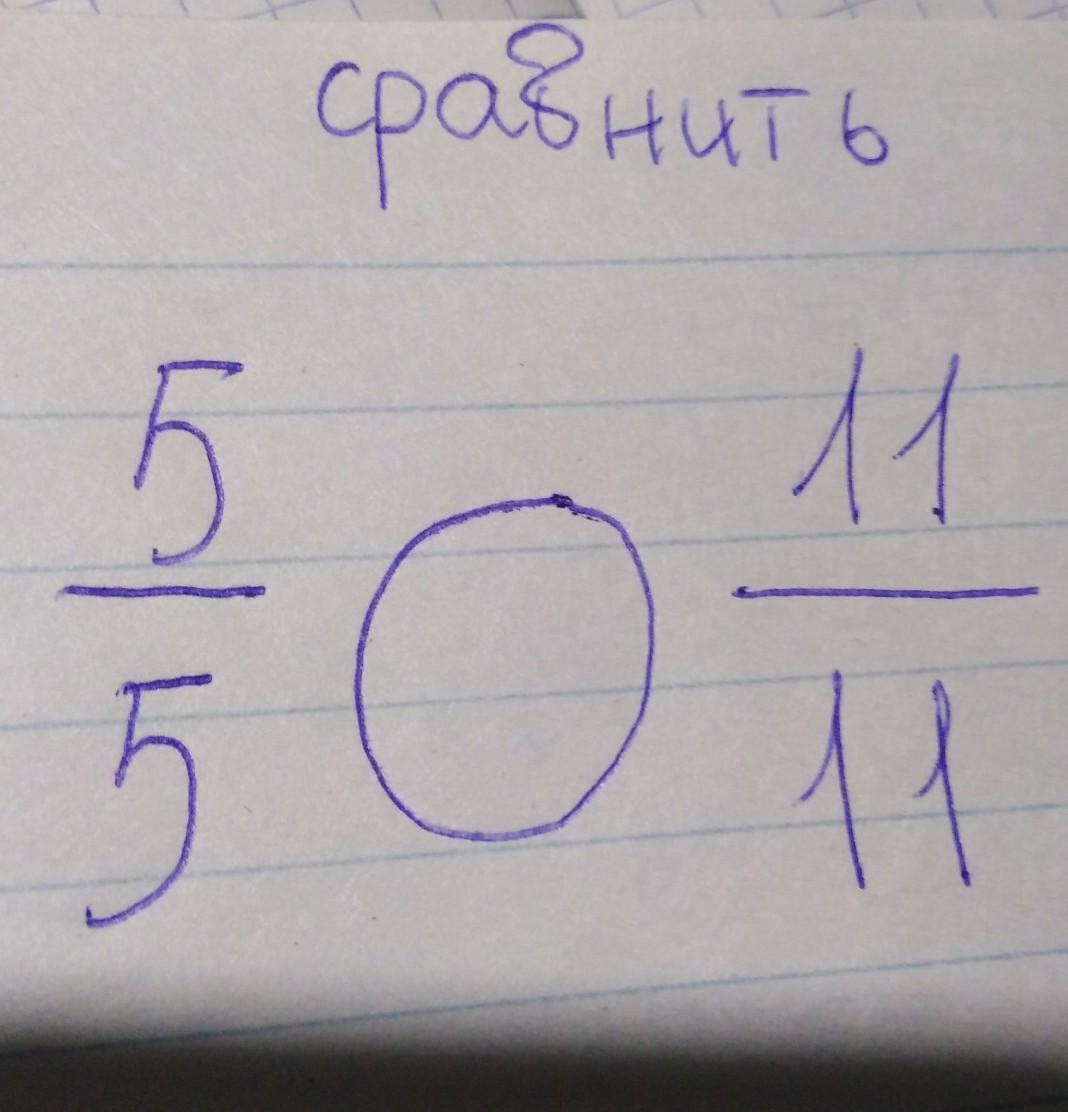 сравнить
5 11
5 11